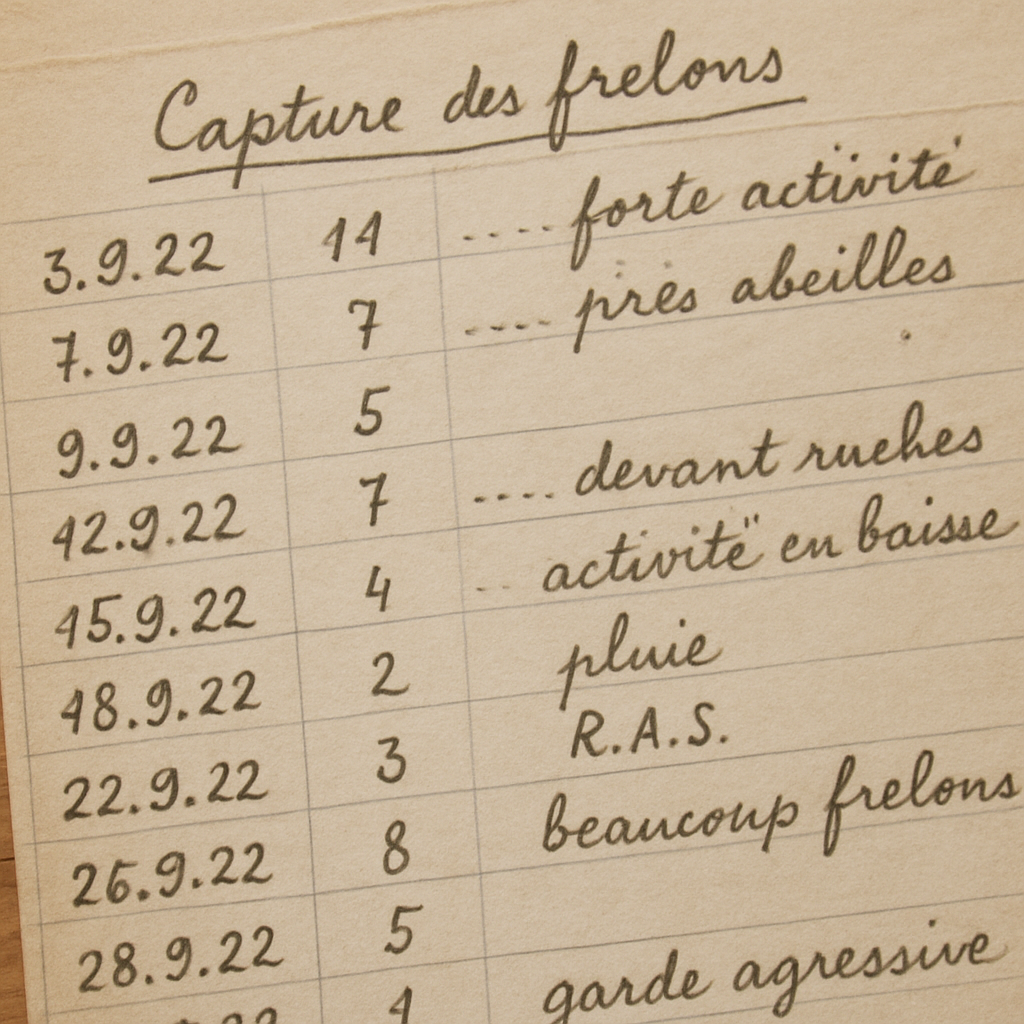 Capture des frelons
3.9.22 11 .... forte activité
7.9.22 7 .... près abeilles
9.9.22 5
12.9.22 7 .... devant ruches
15.9.22 4 .. activité" en baisse
18.9.22 2 pluie
22.9.22 3 R.A.S.
26.9.22 8 beaucoup frelons
28.9.22 5
22 1 garde agressive